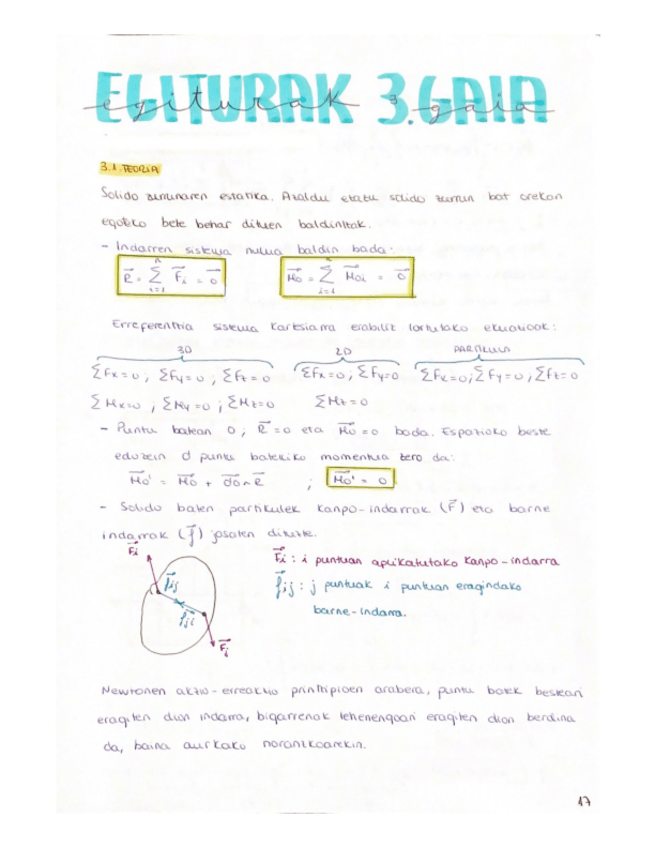 EGITURAK 3.GAIA
egiturak 3 gaia
3.1. TEORIA
Solido zurrunaren estatika. Azaldu etatu solido zurrun bat orekan
egoteko bete behar dituen baldintzak.
- Indarren sistema nulua baldin bada:
R⃗ = Σ(i=1→n) F⃗i = 0⃗    M⃗o = Σ(i=1→n) M⃗oi = 0⃗
Erreferentzia sistema kartsiarra erabiliz lortutako ekuazioak:
3D    2D    PARTIKULA
ΣFx=0 ; ΣFy=0 ; ΣFz=0    ΣFx=0 ; ΣFy=0    ΣFx=0 ; ΣFy=0 ; ΣFz=0
ΣMx=0 ; ΣMy=0 ; ΣMz=0    ΣMz=0
- Puntu batean O ; R⃗=0 eta M⃗o=0 bada. Espazioko beste
edozein O' puntu batekiko momentua zero da:
M⃗o' = M⃗o + O'O⃗ ∧ R⃗ ; M⃗o' = 0
- Solido baten partikulek kanpo-indarrak (F⃗) eta barne
indarrak (f⃗) jasaten dituzte.
F⃗i
F⃗i : i puntuan aplikatutako kanpo-indarra
f⃗ij
f⃗ij : j puntuak i puntuan eragindako
f⃗ji
barne-indarra.
F⃗j
Newtonen akzio-erreakzio printzipioen arabera, puntu batek besteari
eragiten dion indarra, bigarrenak lehenengoari eragiten dion berdina
da, baina aurkako norantzkoarekin.
17